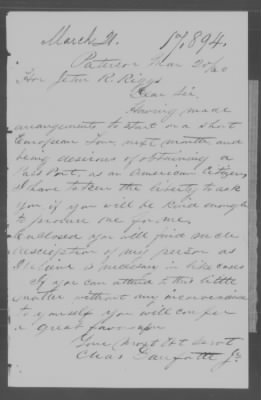 March 21. 17,894.
Paterson Mar 20/60
Hon John R. Riggs
Dear Sir.
Having made
arrangements to start on a short
European Tour next month and
being desirous of obtaining a
Pass Port, as an American Citizen,
I have taken the liberty to ask
you if you will be kind enough
to procure one for me,
Enclosed you will find such
description of my person as
I believe is necessary in like cases
If you can attend to this little
matter without any inconvenience
to yourself you will confer
a great favor upon
Your most Obt Servt
Chas Danforth Jr